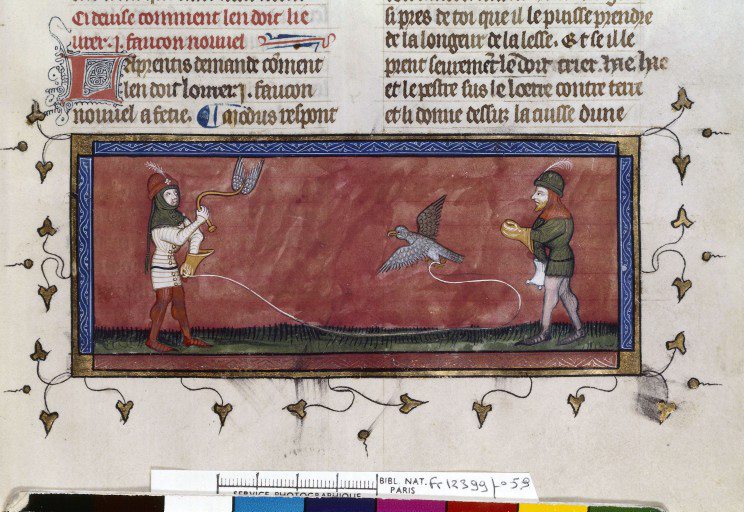 Ci deuise comment len doit lie
urer .j. faucon nouuel
Laprentis demande cōment
len doit loirrer .j. faucon
nouuel afetie. Modus respont
si pres de toi que il le puisse prendre
de la longeur de la lesse. Et se il le
prent seurement le doit crier hae hae
et le pestre sus le loerre contre terre
et li donne dessus la cuisse dune
BIBL. NAT.
PARIS
fr 12399 fo 59
SERVICE PHOTOGRAPHIQUE